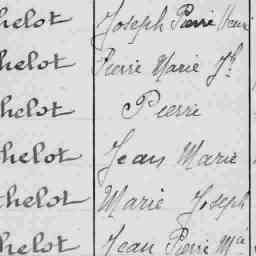 helot Joseph Pierre Henri
helot Pierre Marie Jh
helot Pierre
helot Jean Marie
helot Marie Joseph
helot Jean Pierre Mie